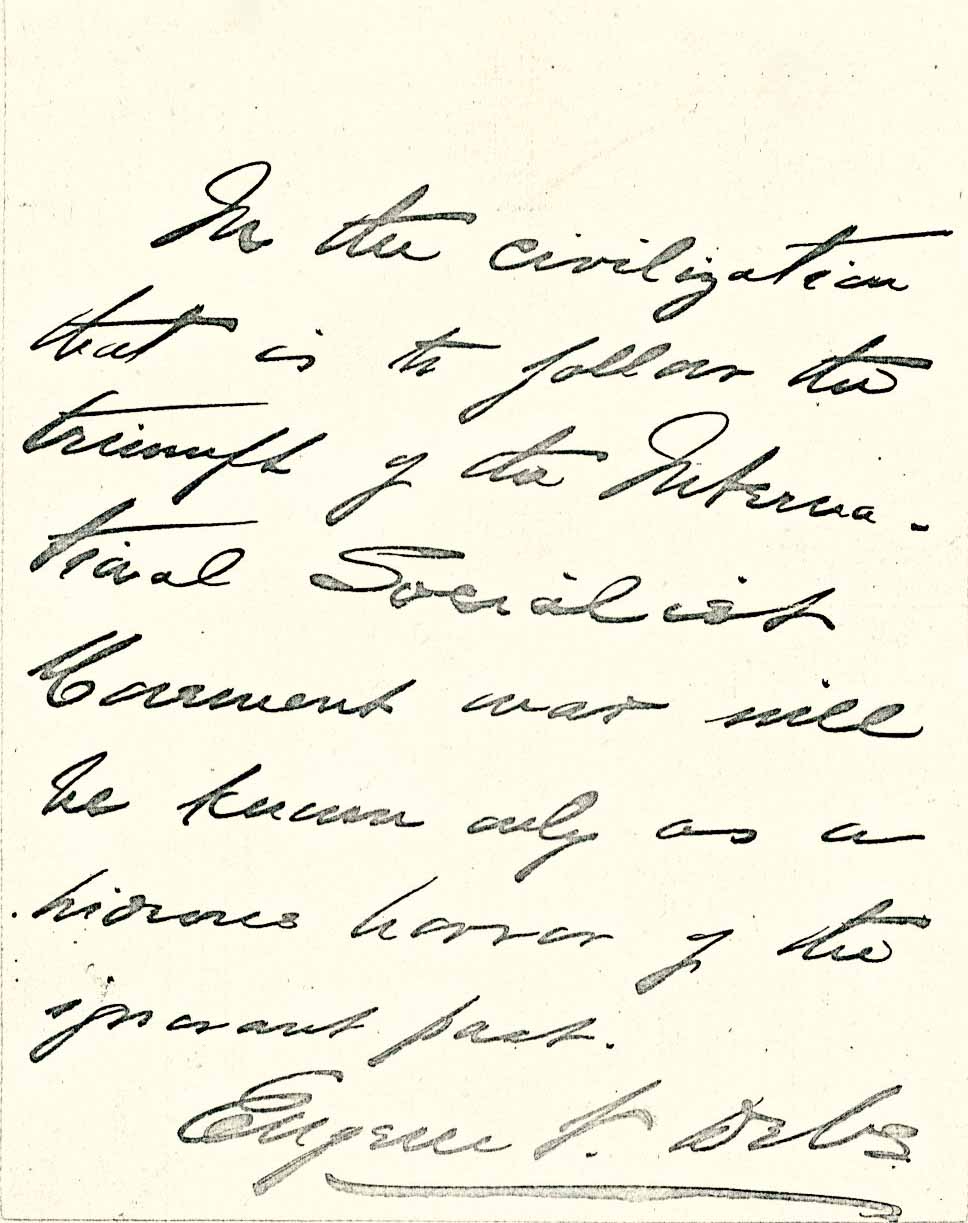 In the civilization
that is to follow the
triumph of the Interna-
tional Socialist
Movement war will
be known only as a
hideous horror of the
ignorant past.
Eugene V. Debs